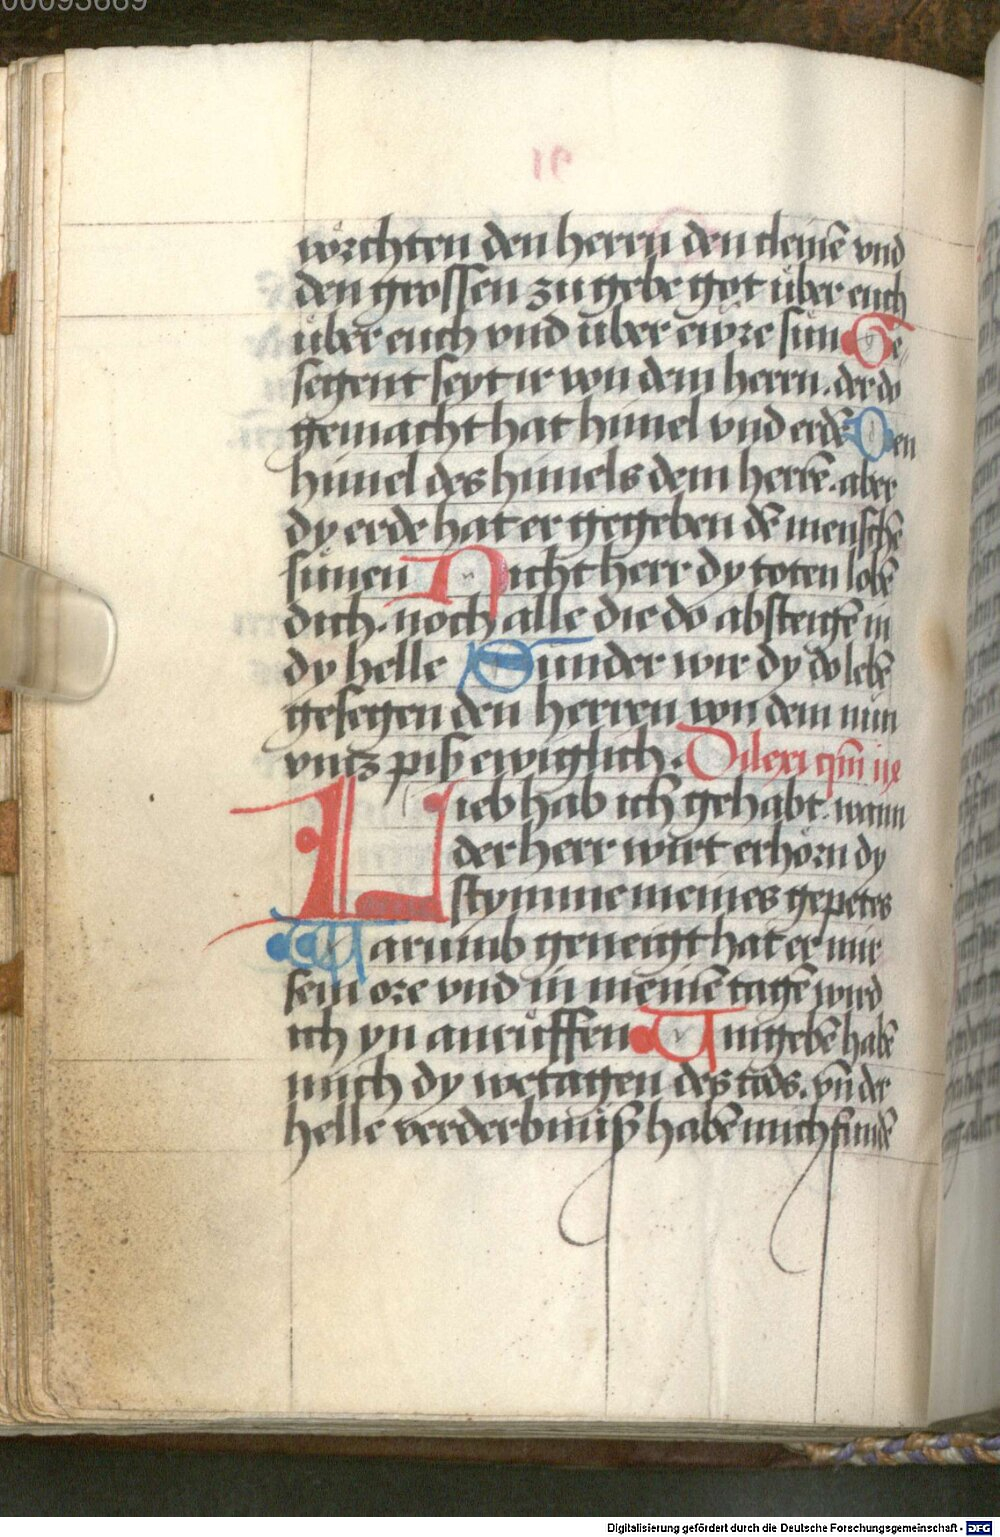 00093669
91
vörchten den herrn den cleinē vnd
den grossen zu gebe got über euch
über euch vnd über ewre sün Ge-
segent seyt ir von dem herrn. der do
gemacht hat himel vnd erdē Den
himel des himels dem herrē. aber
dy erde hat er gegeben dē menschē
sünen Nicht herr dy toten lobē
dich. noch alle die do absteigē in
dy helle Sunder wir dy do lebē
gesegen den herren von dem nün
vntz piß ewiglich. Dilexi qm̄
Lieb hab ich gehabt. wann
der herr wirt erhörn dy
stymme meines gepetes
Warumb geneigt hat er mir
sein ore vnd in meinē tagē wird
ich yn anrüffen Umgebē habē
mich dy wetagen des tods. vn̄ der
helle verderbnüß habē mich fundē
Digitalisierung gefördert durch die Deutsche Forschungsgemeinschaft - DFG